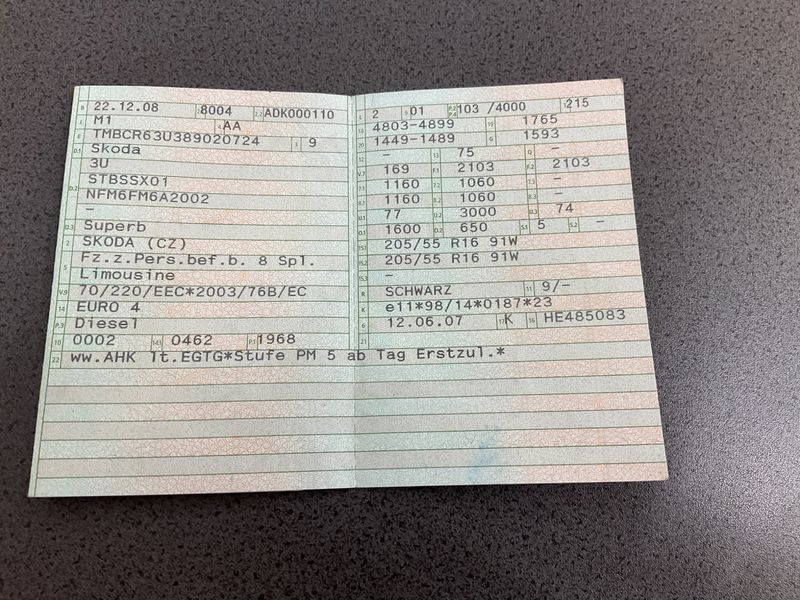 B 22.12.08 8004 2.2 ADK000110
J M1 4 AA
E TMBCR63U389020724 3 9
D.1 Skoda
3U
D.2 STBSSX01
NFM6FM6A2002
–
D.3 Superb
2 SKODA (CZ)
5 Fz.z.Pers.bef.b. 8 Spl.
Limousine
V.9 70/220/EEC*2003/76B/EC
14 EURO 4
P.3 Diesel
10 0002 14.1 0462 P.1 1968
22 ww.AHK lt.EGTG*Stufe PM 5 ab Tag Erstzul.*
L 2 9 01 P.2 P.4 103 /4000 T 215
18 4803-4899 19 1765
20 1449-1489 G 1593
12 – 13 75 Q –
V.7 169 F.1 2103 F.2 2103
7.1 1160 7.2 1060 7.3 –
8.1 1160 8.2 1060 8.3 –
U.1 77 U.2 3000 U.3 74
O.1 1600 O.2 650 S.1 5 S.2 –
15.1 205/55 R16 91W
15.2 205/55 R16 91W
15.3 –
R SCHWARZ 11 9/–
K e11*98/14*0187*23
6 12.06.07 17 K 16 HE485083
21